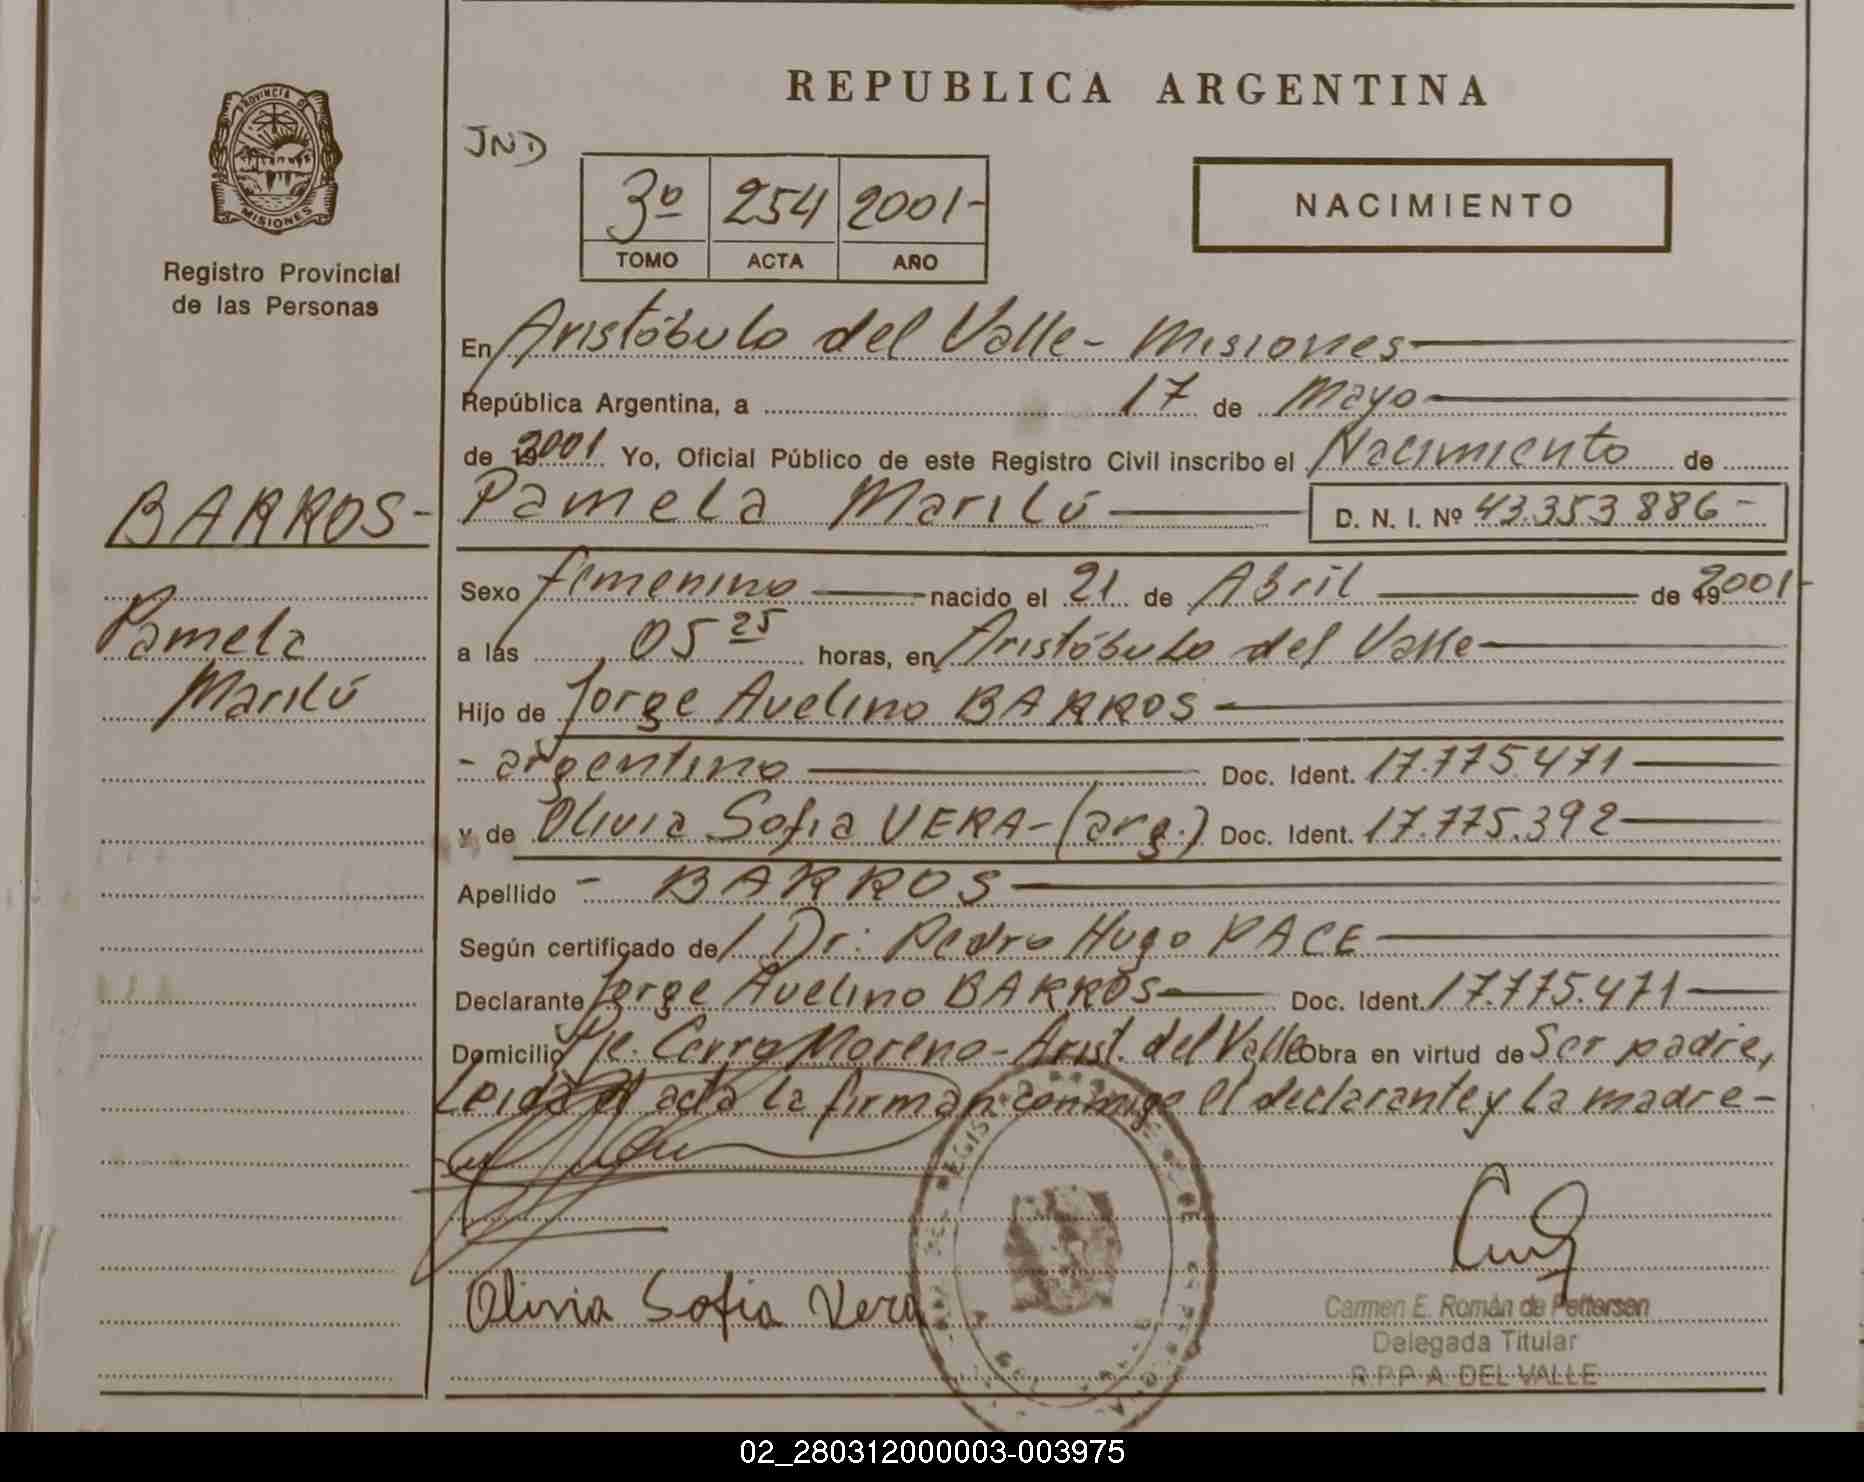 PROVINCIA DE
MISIONES
Registro Provincial
de las Personas
BARROS-
Pamela
Marilú
REPUBLICA ARGENTINA
JND
3º 254 2001-
TOMO ACTA AÑO
NACIMIENTO
En Aristóbulo del Valle- Misiones
República Argentina, a 17 de Mayo
de 2001 Yo, Oficial Público de este Registro Civil inscribo el Nacimiento de
Pamela Marilú D. N. I. Nº 43.353886-
Sexo femenino nacido el 21 de Abril de 2001-
a las 05 25 horas, en Aristóbulo del Valle
Hijo de Jorge Avelino BARROS
- argentino Doc. Ident. 17.775.471
y de Olivia Sofia VERA-(arg.) Doc. Ident. 17.775.392
Apellido - BARROS
Según certificado de/ Dr: Pedro Hugo PACE
Declarante Jorge Avelino BARROS Doc. Ident. 17.775.471
Domicilio Pje. Cerro Moreno-Arist. del Valle Obra en virtud de Ser padre,
Leida el acta la firman conmigo el declarante y la madre-
Olivia Sofia Vera
Carmen E. Román de Pettersen
Delegada Titular
R.P.P. A. DEL VALLE
02_280312000003-003975